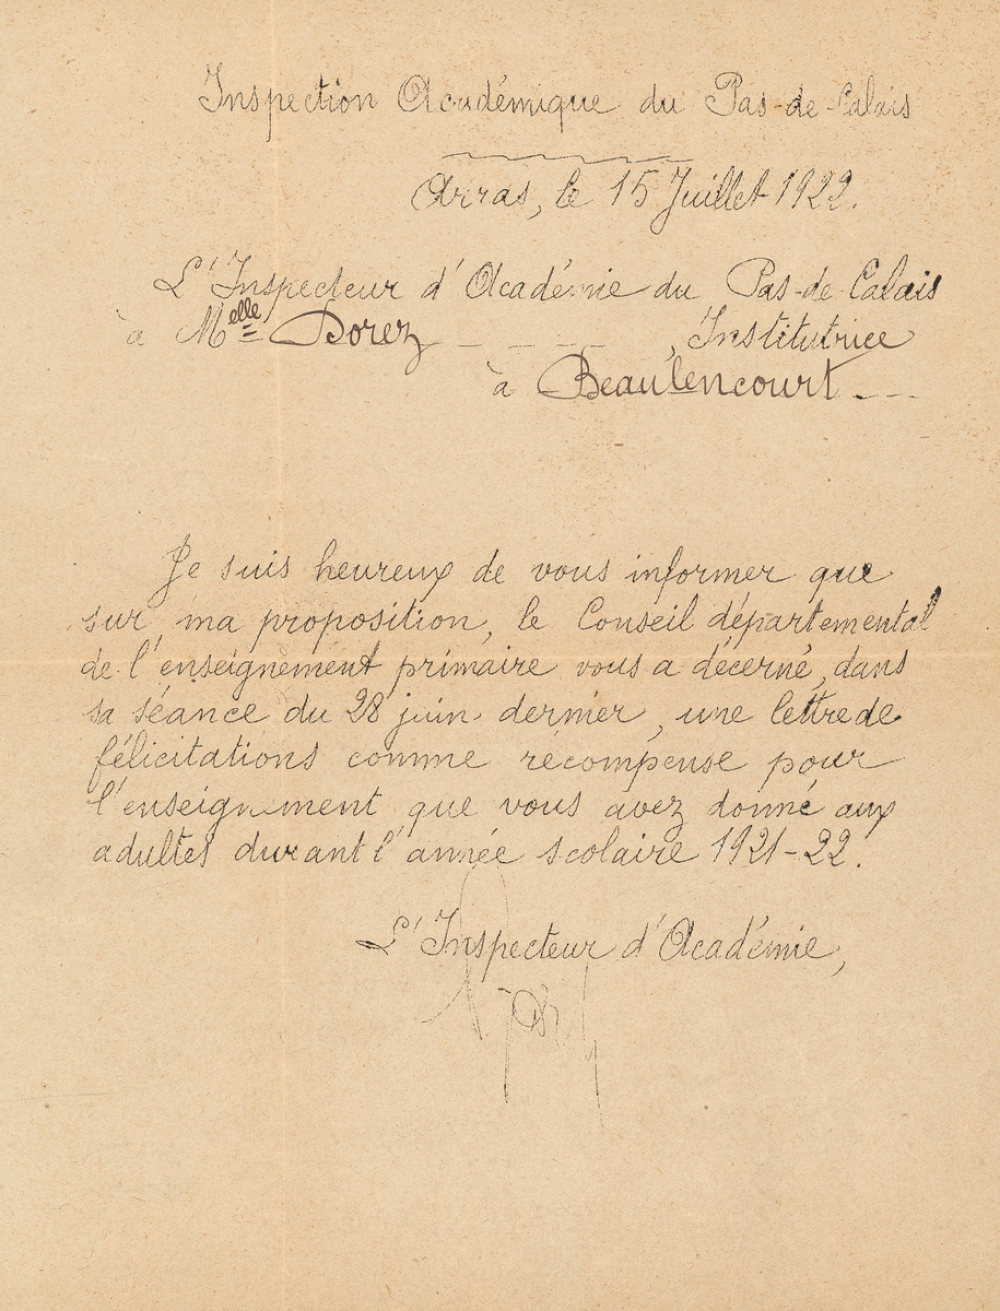 Inspection Académique du Pas-de-Calais
Arras, le 15 Juillet 1922.
L'Inspecteur d'Académie du Pas-de-Calais
à Melle Dorez - - - - , Institutrice
à Beaulencourt - - -
Je suis heureux de vous informer que
sur ma proposition, le Conseil départemental
de l'enseignement primaire vous a décerné, dans
sa séance du 28 juin dernier, une lettre de
félicitations comme récompense pour
l'enseignement que vous avez donné aux
adultes durant l'année scolaire 1921-22.
L'Inspecteur d'Académie,